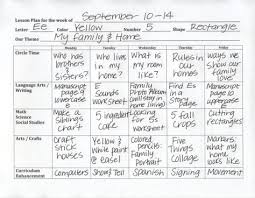 Lesson Plan for the week of September 10-14
Letter Ee Color Yellow Number 5 Shape Rectangle
Our Theme My Family & Home
Monday Tuesday Wednesday Thursday Friday
Circle Time
Who has brothers or sisters?
Who lives in my home?
What does my room look like?
Rules in our homes
ways we show our family love?
Language Arts / Writing
Manuscript page 9 lowercase e
Manuscript page 8 uppercase E
Family Photo Album
Find Es in a Story
Manuscript page
Math
Science
Social Studies
Make a Siblings chart
5 ingredient Cake
Looking for 5s worksheet
5 fall Crops
Cutting rectangles
Arts / Crafts
Craft stick houses
Yellow & white paint @ easel
Colored pencils: Family Portrait
Five Things Collage
Markers: what my home looks like
Curriculum Enhancement
Computers
Show/Tell
Spanish
Signing
Movement